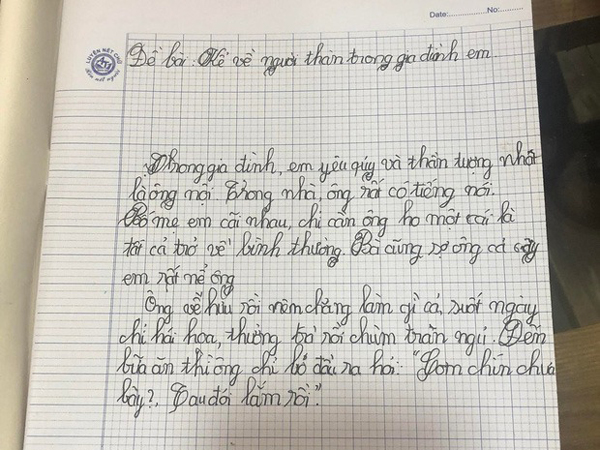 Date:..............No:..........
LUYỆN NÉT CHỮ
Rèn nết người
Đề bài: Kể về người thân trong gia đình em
Trong gia đình, em yêu qúy và thần tượng nhất
là ông nội. Trong nhà, ông rất có tiếng nói.
Bố mẹ em cãi nhau, chỉ cần ông ho một cái là
tất cả trở về bình thường. Bà cũng sợ ông cả
em rất nể ông
Ông về hưu rồi nên chẳng làm gì cả, suốt ngày
chỉ hái hoa, thưởng trà rồi chùm trăn ngủ. Đến
bữa ăn thì ông chỉ ló đầu ra hỏi: "Cơm chín chưa
bây?, Tau đói lắm rồi."